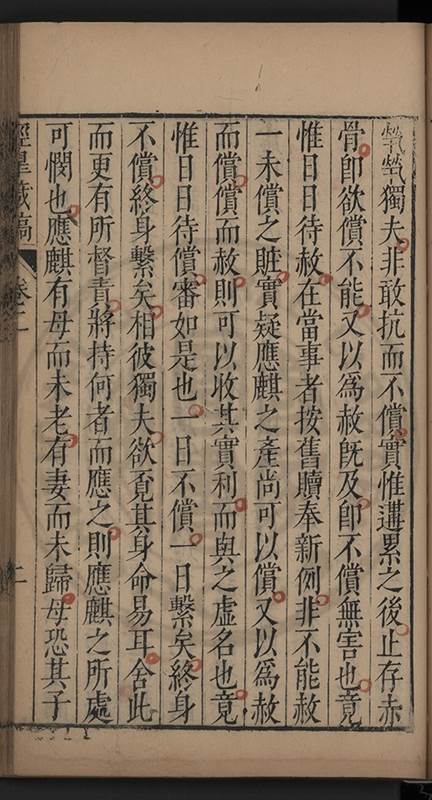 煢煢獨夫非敢抗而不償實惟遘累之後止存赤
骨卽欲償不能又以爲赦旣及卽不償無害也竟
惟日日待赦在當事者按舊贖奉新例非不能赦
一未償之賍實疑應麒之產尚可以償又以爲赦
而償償而赦則可以收其實利而與之虛名也竟
惟日日待償審如是也一日不償一日繫矣終身
不償終身繫矣相彼獨夫欲覓其身命易耳舍此
而更有所督責將持何者而應之則應麒之所處
可憫也應麒有母而未老有妻而未歸母恐其子
經皇藏稿 卷二 二